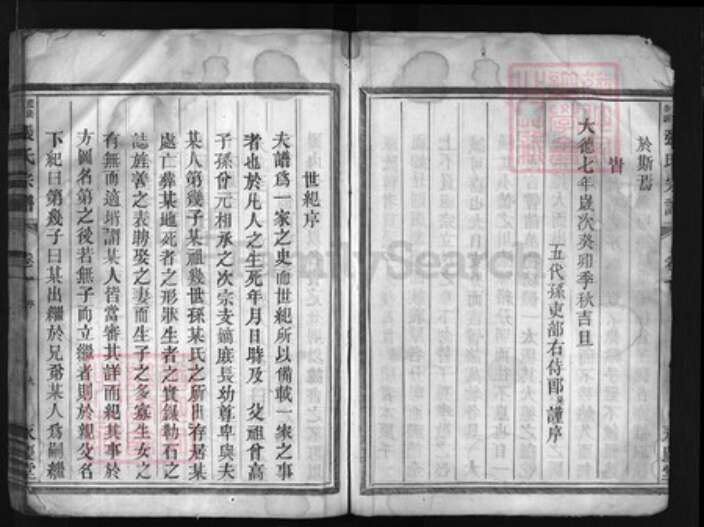 於斯焉
旹
大德七年歲次癸卯季秋吉旦
五代孫吏部右侍郎謹序
世紀序
夫譜爲一家之史而世紀所以備載一家之事
者也於凡人之生死年月日時及父祖曾高
子孫曾元相承之次宗支嫡庶長幼尊卑與夫
某人第幾子某祖幾世孫某氏之所出存居某
處亡葬某地死者之形狀生者之實錄勒石之
誌旌善之表聘娶之妻而生子之多寡生女之
有無而適壻謂某人皆當審其詳而紀其事於
方圖名第之後若無子而立繼者則於親父名
下紀曰第幾子曰某出繼於兄弟某人爲嗣繼
張氏宗譜
卷一
序
FamilySearch